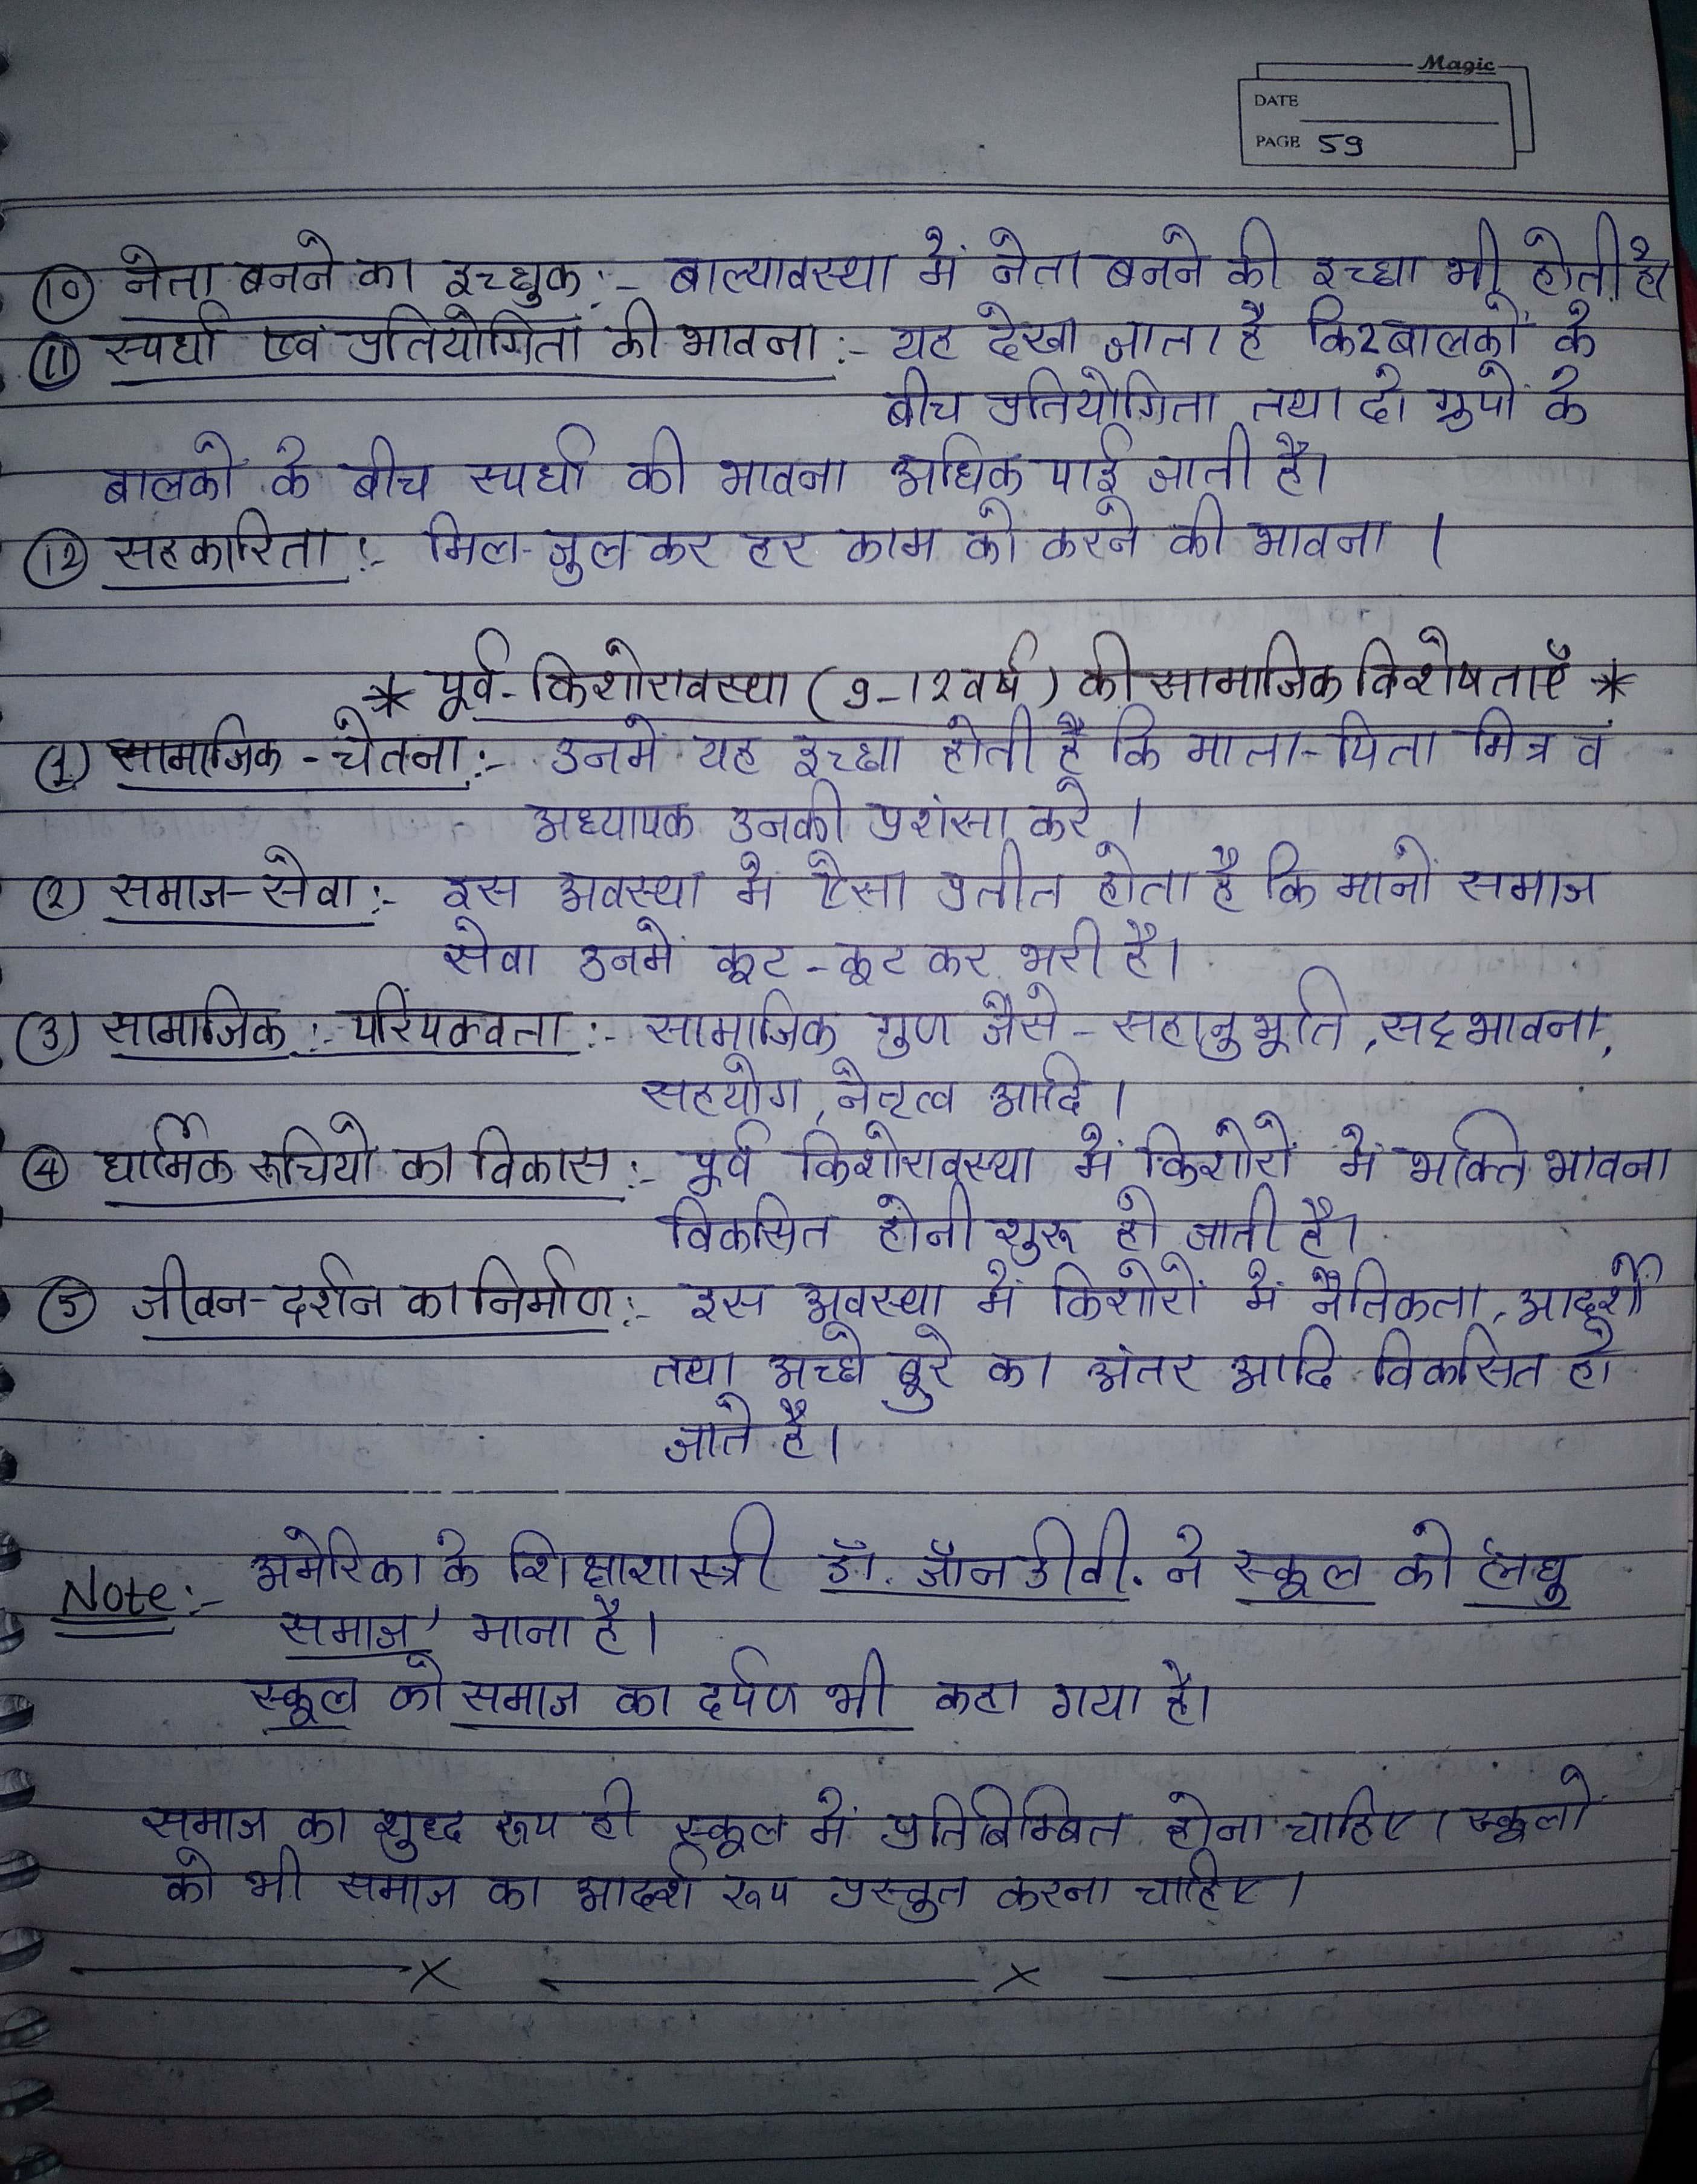 Magic
DATE
PAGE 59
⑩ नेता बनने का इच्छुक :- बाल्यावस्था में नेता बनने की इच्छा भी होती है।
⑪ स्पर्धा एवं प्रतियोगिता की भावना :- यह देखा जाता है कि 2 बालकों के
बीच प्रतियोगिता तथा दो ग्रुपों के
बालकों के बीच स्पर्धा की भावना अधिक पाई जाती है।
⑫ सहकारिता :- मिल-जुल कर हर काम को करने की भावना ।
* पूर्व-किशोरावस्था (9-12 वर्ष) की सामाजिक विशेषताएँ *
(1) सामाजिक-चेतना :- उनमें यह इच्छा होती है कि माता-पिता मित्र व
अध्यापक उनकी प्रशंसा करे ।
(2) समाज-सेवा :- इस अवस्था में ऐसा प्रतीत होता है कि मानों समाज
सेवा उनमें कूट-कूट कर भरी है।
(3) सामाजिक :- परिपक्वता :- सामाजिक गुण जैसे - सहानुभूति, सद्भावना,
सहयोग, नेतृत्व आदि ।
④ धार्मिक रूचियों का विकास :- पूर्व किशोरावस्था में किशोरों में भक्ति भावना
विकसित होनी शुरू हो जाती है।
⑤ जीवन-दर्शन का निर्माण :- इस अवस्था में किशोरों में नैतिकता, आदर्शों
तथा अच्छे बुरे का अंतर आदि विकसित हो
जाते है।
Note :- अमेरिका के शिक्षाशास्त्री डॉ. जॉन डीवी. ने स्कूल को 'लघु
समाज' माना है।
स्कूल को समाज का दर्पण भी कहा गया है।
समाज का शुध्द रूप ही स्कूल में प्रतिबिम्बित होना चाहिए। स्कूलों
को भी समाज का आदर्श रूप प्रस्तुत करना चाहिए।